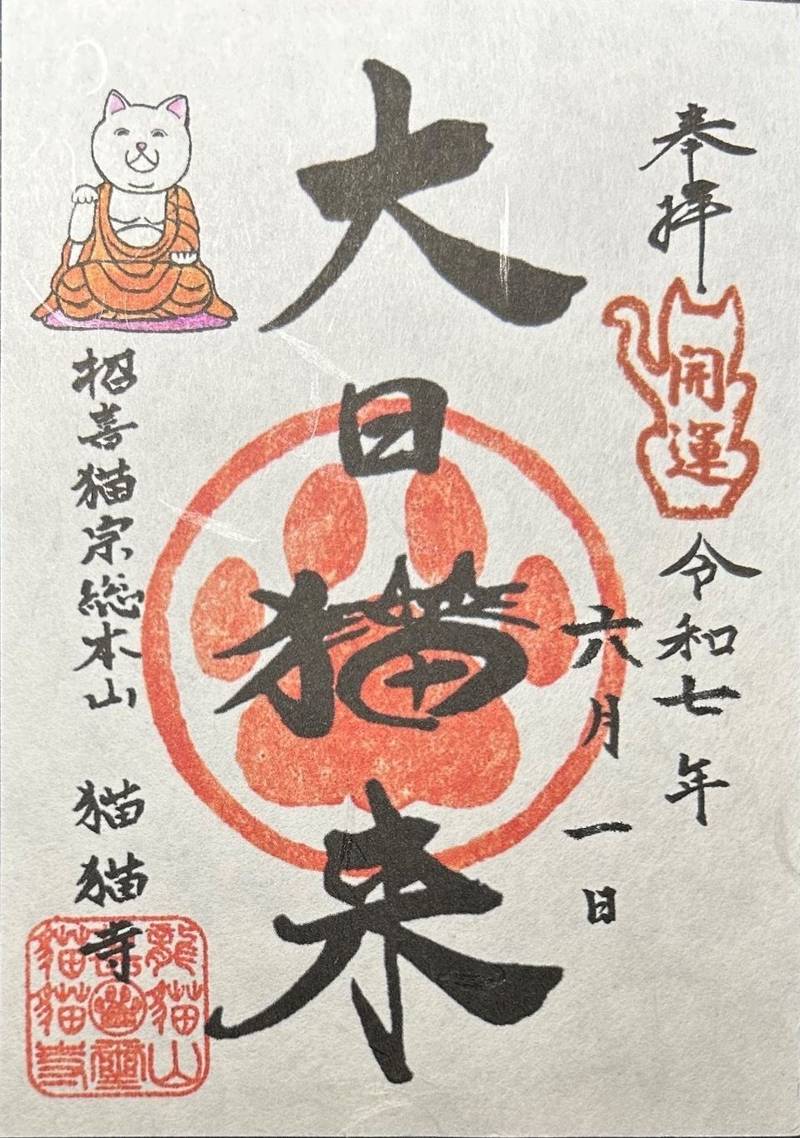 奉拝
開運
令和七年
六月一日
大日猫来
招喜猫宗総本山 猫猫寺
龍猫山
猫猫寺